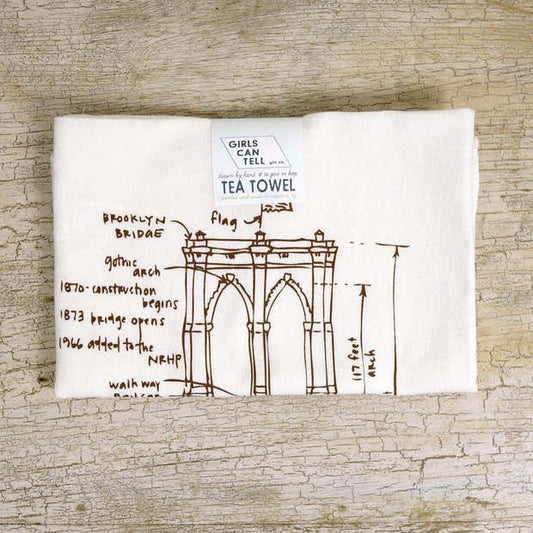 GIRLS
CAN
TELL
TEA TOWEL
BROOKLYN
BRIDGE
flag
gothic
arch
1870-construction
begins
1873 bridge opens
1966 added to the
NRHP
walk way
117 feet
arch